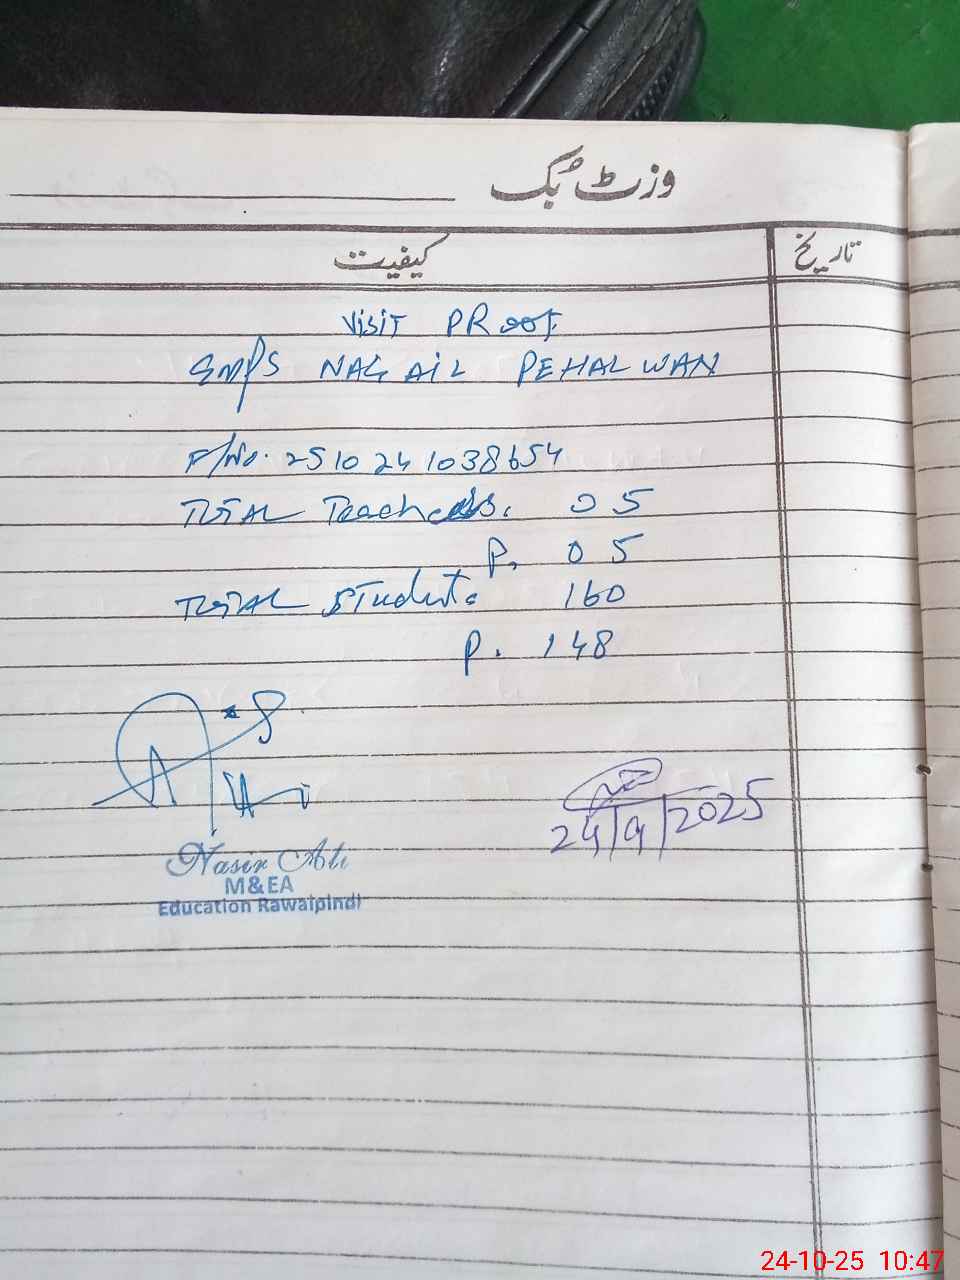 وزٹ بُک
تاریخ
کیفیت
Visit PRoof
GMPS NAGAIL PEHALWAN
F/No. 2510241038654
Total Teachers. 05
P. 05
Total Student. 160
P. 148
24/9/2025
Nasir Ali
M&EA
Education Rawalpindi
24-10-25 10:47